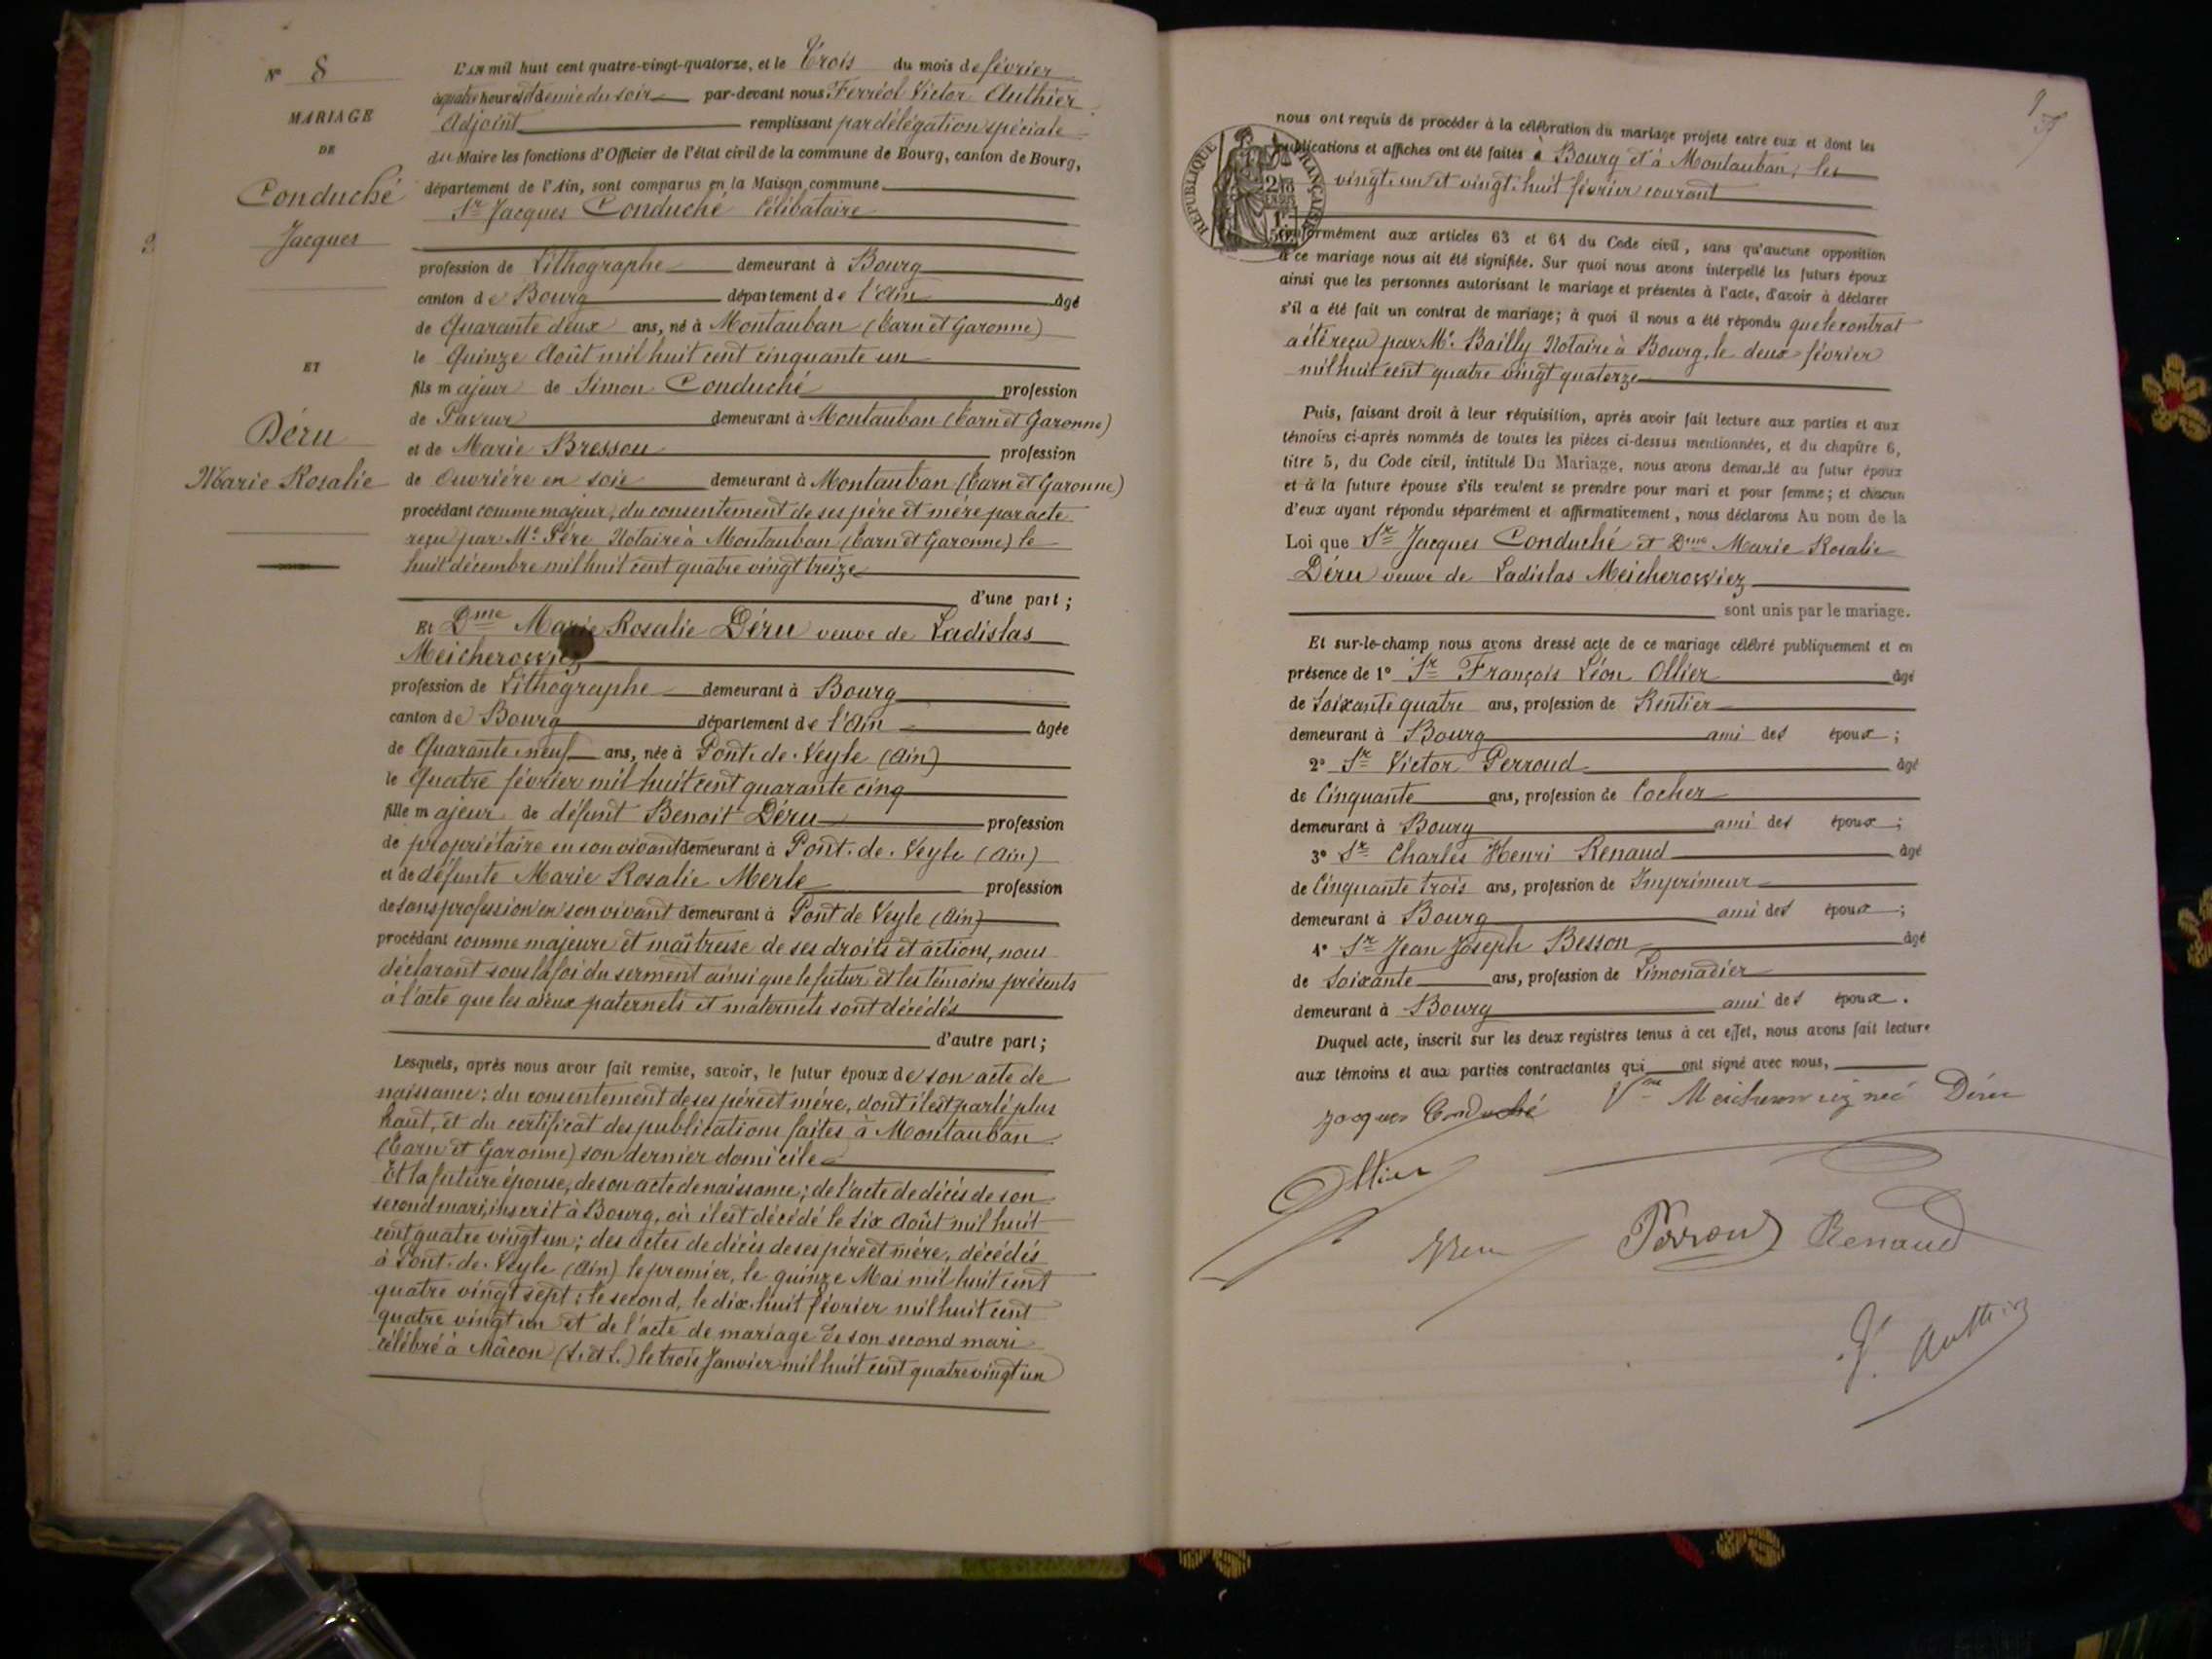 N° 8
MARIAGE
DE
Conduché
Jacques
ET
Déru
Marie Rosalie
L'AN mil huit cent quatre-vingt-quatorze, et le Trois du mois de février
à quatre heures et demie du soir par-devant nous Ferréol Victor Authier
Adjoint remplissant par délégation spéciale
du Maire les fonctions d'Officier de l'état civil de la commune de Bourg, canton de Bourg,
département de l'Ain, sont comparus en la Maison commune
Sr Jacques Conduché Célibataire
profession de Lithographe demeurant à Bourg
canton de Bourg département de l'Ain âgé
de Quarante deux ans, né à Montauban (Tarn et Garonne)
le Quinze Août mil huit cent cinquante un
fils majeur de Simon Conduché profession
de Paveur demeurant à Montauban (Tarn et Garonne)
et de Marie Bressou profession
de Ouvrière en soie demeurant à Montauban (Tarn et Garonne)
procédant comme majeur, du consentement de ses père et mère par acte
reçu par Me Père Notaire à Montauban (Tarn et Garonne) le
huit décembre mil huit cent quatre vingt treize
d'une part ;
Et Dme Marie Rosalie Déru veuve de Ladislas
Meicherowiez
profession de Lithographe demeurant à Bourg
canton de Bourg département de l'Ain âgée
de Quarante neuf ans, née à Pont-de-Veyle (Ain)
le Quatre février mil huit cent quarante cinq
fille majeur de défunt Benoit Déru profession
de propriétaire en son vivant demeurant à Pont-de-Veyle (Ain)
et de défunte Marie Rosalie Merle profession
de sans profession en son vivant demeurant à Pont de Veyle (Ain)
procédant comme majeure et maîtresse de ses droits et actions, nous
déclarant sous la foi du serment ainsi que le futur et les témoins présents
à l'acte que les aïeux paternels et maternels sont décédés
d'autre part ;
Lesquels, après nous avoir fait remise, savoir, le futur époux de son acte de
naissance ; du consentement de ses père et mère, dont il est parlé plus
haut, et du certificat des publications faites à Montauban
(Tarn et Garonne) son dernier domicile
Et la future épouse, de son acte de naissance ; de l'acte de décès de son
second mari, inscrit à Bourg, où il est décédé le Six Août mil huit
cent quatre vingt un ; des actes de décès de ses père et mère, décédés
à Pont-de-Veyle (Ain) le premier, le quinze Mai mil huit cent
quatre vingt sept ; le second, le dix-huit février mil huit cent
quatre vingt un et de l'acte de mariage de son second mari
célébré à Mâcon (S. et L.) le trois Janvier mil huit cent quatre vingt un
REPUBLIQUE FRANÇAISE
nous ont requis de procéder à la célébration du mariage projeté entre eux et dont les
publications et affiches ont été faites à Bourg et à Montauban, les
vingt-un et vingt-huit février courant
conformément aux articles 63 et 64 du Code civil, sans qu'aucune opposition
à ce mariage nous ait été signifiée. Sur quoi nous avons interpellé les futurs époux
ainsi que les personnes autorisant le mariage et présentes à l'acte, d'avoir à déclarer
s'il a été fait un contrat de mariage ; à quoi il nous a été répondu que le contrat
a été reçu par Me Bailly Notaire à Bourg, le deux février
mil huit cent quatre vingt quatorze
Puis, faisant droit à leur réquisition, après avoir fait lecture aux parties et aux
témoins ci-après nommés de toutes les pièces ci-dessus mentionnées, et du chapitre 6,
titre 5, du Code civil, intitulé Du Mariage, nous avons demandé au futur époux
et à la future épouse s'ils veulent se prendre pour mari et pour femme ; et chacun
d'eux ayant répondu séparément et affirmativement, nous déclarons Au nom de la
Loi que Sr Jacques Conduché et Dme Marie Rosalie
Déru veuve de Ladislas Meicherowiez
sont unis par le mariage.
Et sur-le-champ nous avons dressé acte de ce mariage célébré publiquement et en
présence de 1° Sr François Léon Ollier âgé
de Soixante quatre ans, profession de Rentier
demeurant à Bourg ami des époux ;
2° Sr Victor Perroud âgé
de Cinquante ans, profession de Cocher
demeurant à Bourg ami des époux ;
3° Sr Charles Henri Renaud âgé
de Cinquante trois ans, profession de Imprimeur
demeurant à Bourg ami des époux ;
4° Sr Jean Joseph Besson âgé
de Soixante ans, profession de Limonadier
demeurant à Bourg ami des époux.
Duquel acte, inscrit sur les deux registres tenus à cet effet, nous avons fait lecture
aux témoins et aux parties contractantes qui ont signé avec nous,
Jacques Conduché Vve Meicherowiez née Déru
Ollier
Perroud Renaud
F. Authier